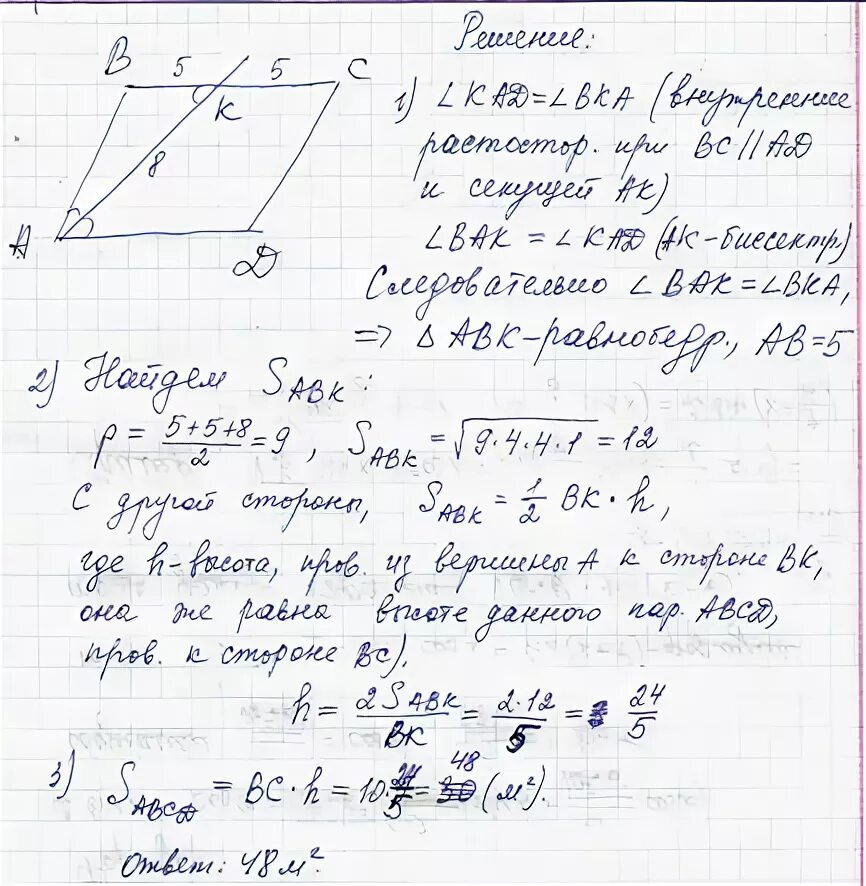 Решение:
B 5 5 C
K
8
A
D
1) ∠KAD=∠BKA (внутренние
растостор. при BC//AD
и секущей AK)
∠BAK = ∠KAD (AK-биссектр)
Следовательно ∠BAK=∠BKA,
=> △ABK-равнобедр., AB=5
2) Найдем S_ABK:
p = (5+5+8)/2 = 9, S_ABK = √(9·4·4·1) = 12
С другой стороны, S_ABK = 1/2 BK·h,
где h-высота, пров. из вершины A к стороне BK,
она же равна высоте данного пар. ABCD,
пров. к стороне BC).
h = 2S_ABK/BK = 2·12/5 = 24/5
3) S_ABCD = BC·h = 10·24/5 = 48 (м²).
Ответ: 48м².